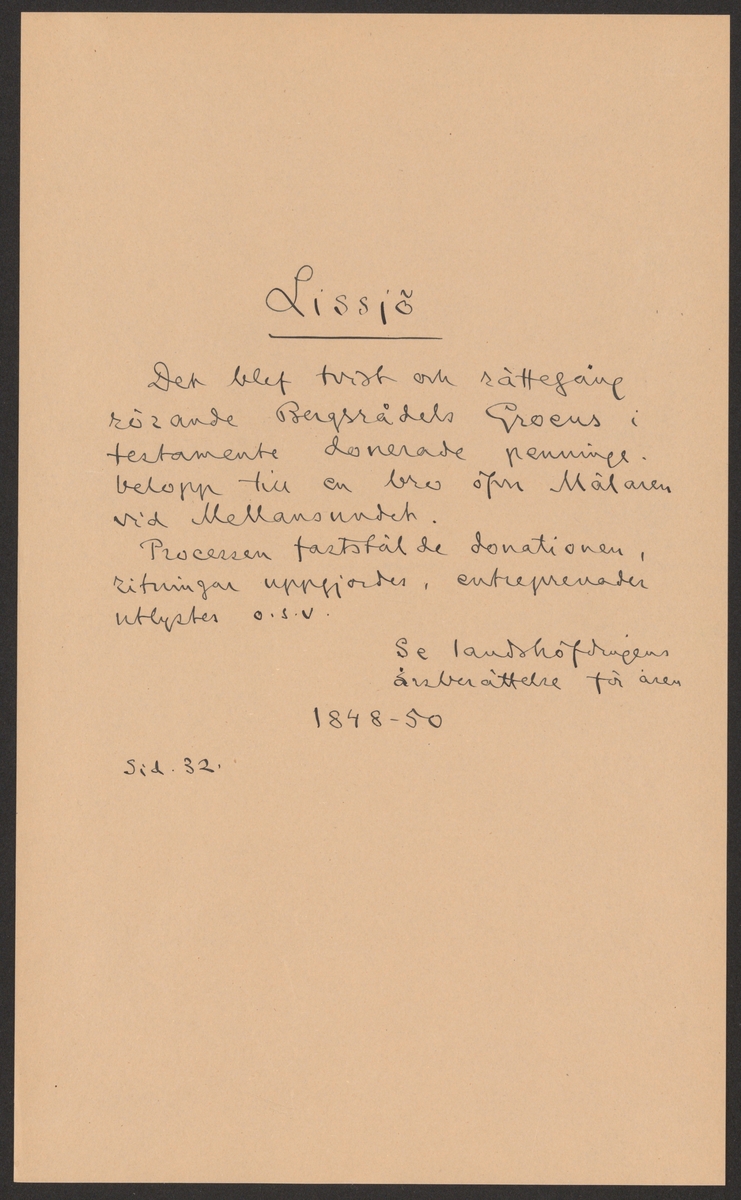 Lissjö
Det blef tvist och rättegång
rörande Bergsrådets Groens i
testamente donerade penninge-
belopp till en bro öfver Mälaren
vid Mellansundet.
Processen faststälde donationen,
ritningar uppgjordes, entreprenader
utlystes o.s.v.
Se landshöfdingens
årsberättelse för åren
1848-50
Sid. 32.